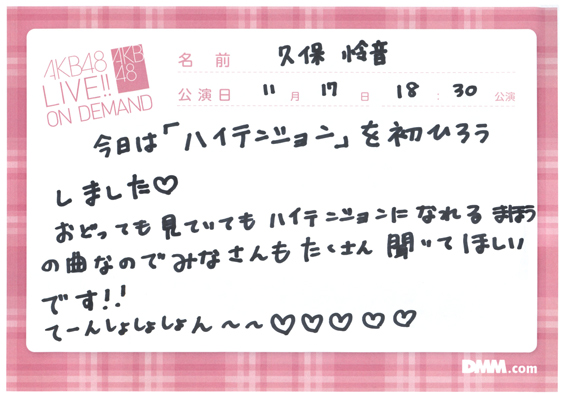 AKB48
LIVE!!
ON DEMAND
AKB
48
名 前 久保 怜音
公演日 11月 17日 18:30公演
今日は「ハイテンション」を初ひろう
しました♡
おどっても見ていてもハイテンションになれるまほう
の曲なのでみなさんもたくさん聞いてほしい
です!!
てーんしょしょしょん〜〜♡♡♡♡♡
DMM.com